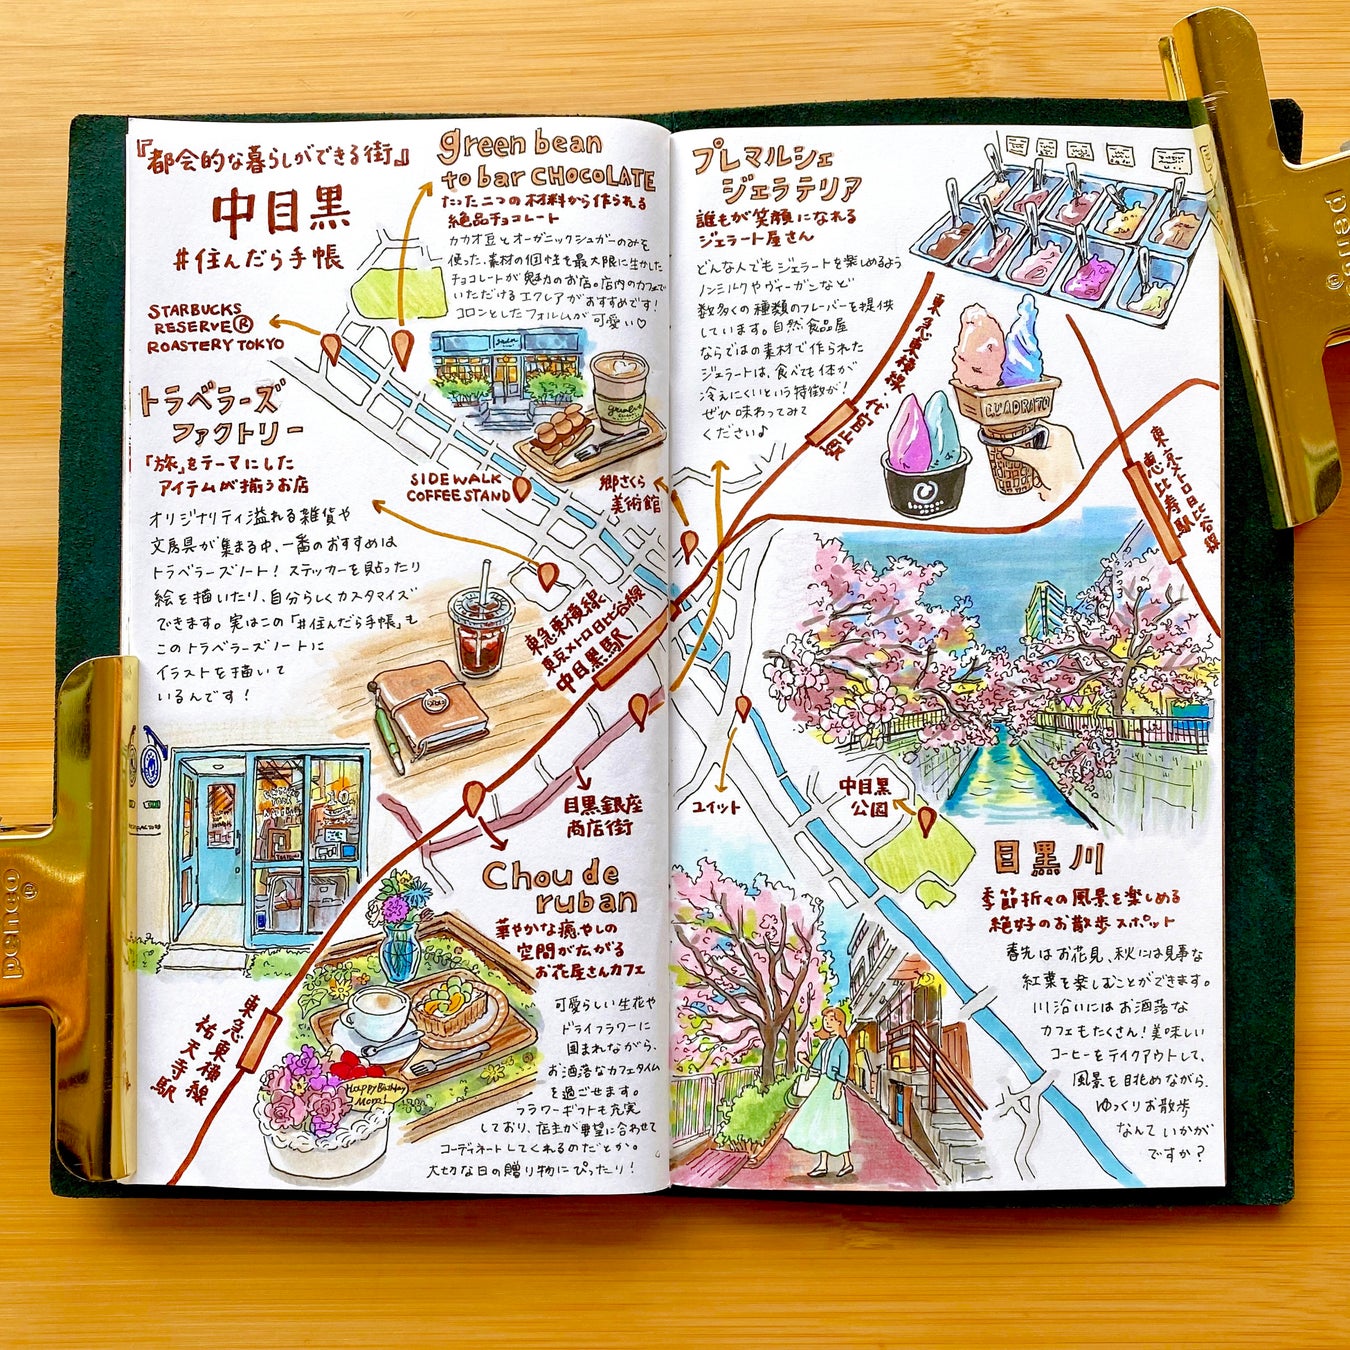 『都会的な暮らしができる街』
中目黒
#住んだら手帳
STARBUCKS
RESERVE®
ROASTERY TOKYO
green bean
to bar CHOCOLATE
たった二つの材料から作られる
絶品チョコレート
カカオ豆とオーガニックシュガーのみを
使った、素材の個性を最大限に生かした
チョコレートが魅力のお店。店内のカフェで
いただけるエクレアがおすすめです!
コロンとしたフォルムが可愛い♡
トラベラーズ
ファクトリー
「旅」をテーマにした
アイテムが揃うお店
オリジナリティ溢れる雑貨や
文房具が集まる中、一番のおすすめは
トラベラーズノート! ステッカーを貼ったり
絵を描いたり、自分らしくカスタマイズ
できます。実はこの「#住んだら手帳」も
このトラベラーズノートに
イラストを描いて
いるんです!
SIDEWALK
COFFEE STAND
郷さくら
美術館
東急東横線
東京メトロ日比谷線
中目黒駅
目黒銀座
商店街
Chou de
ruban
華やかな癒やしの
空間が広がる
お花屋さんカフェ
可愛らしい生花や
ドライフラワーに
囲まれながら、
お洒落なカフェタイム
を過ごせます。
フラワーギフトも充実
しており、店主が要望に合わせて
コーディネートしてくれるのだとか。
大切な日の贈り物にぴったり!
Happy Birthday
Mom!
東急東横線
祐天寺駅
プレマルシェ
ジェラテリア
誰もが笑顔になれる
ジェラート屋さん
どんな人でもジェラートを楽しめるよう
ノンミルクやヴィーガンなど
数多くの種類のフレーバーを提供
しています。自然食品屋
ならではの素材で作られた
ジェラートは、食べても体が
冷えにくいという特徴が!
ぜひ味わってみて
ください♪
QUADRATO
東急東横線・代官山駅
東京メトロ日比谷線
恵比寿駅
ユイット
中目黒
公園
目黒川
季節折々の風景を楽しめる
絶好のお散歩スポット
春先はお花見、秋には見事な
紅葉を楽しむことができます。
川沿いにはお洒落な
カフェもたくさん! 美味しい
コーヒーをテイクアウトして、
風景を眺めながら、
ゆっくりお散歩
なんていかが
ですか?
penco®
penco®